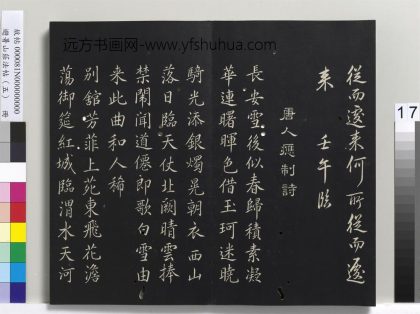 远方书画网-www.yfshuhua.com
從而遷來何所從而遷
來 壬午臨
唐人應制詩
長安雪後似春歸積素凝
華連曙暉色借玉珂迷曉
騎光添銀燭晃朝衣西山
落日臨天仗北闕晴雲捧
禁闈聞道僊郎歌白雪由
來此曲和人稀
別館芳菲上苑東飛花澹
蕩御筵紅城臨渭水天河
故帖 000081N00000000
避暑山莊法帖（五） 冊
17